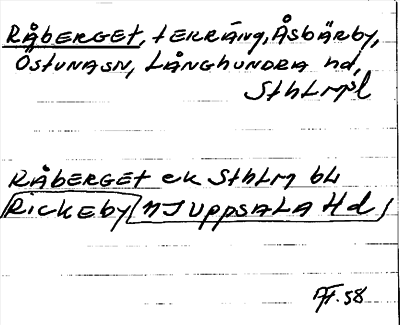 Råberget, terräng, Åsbärby,
Östuna sn, Långhundra hd,
Sthlms l
Råberget ek Sthlm bl
Rickeby NJ Uppsala Hd